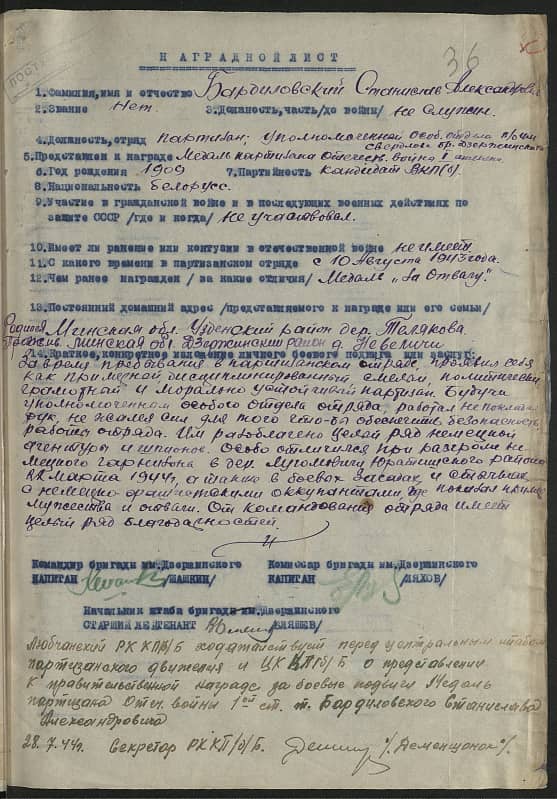 36
ПОСТ
НАГРАДНОЙ ЛИСТ
1.Фамилия,имя и отчество Бардиловский Станислав Александрович
2.Звание Нет. 3.Должность,часть/до войны/ не служил.
4.Должность,отряд партизан; уполномоченный особ. отдела п/отр
свердлов бр. Дзержинского
5.Представлен к награде Медаль партизана отечеств. война I степени
6.Год рождения 1909 7.Партийность кандидат ВКП(б).
8.Национальность Белорусс.
9.Участие в гражданской войне и в последующих военных действиях по
защите СССР /где и когда/ не участвовал.
10.Имеет ли ранение или контузии в отечественной войне не имеет
11.С какого времени в партизанском отряде с 10 Августа 1943 года.
12.Чем ранее награжден /за какие отличия/ Медаль „За Отвагу".
13.Постоянный домашний адрес /представляемого к награде или его семьи/
Родился Минская обл. Узденский район дер. Телякова.
Прожив. Минская обл. Дзержинский район д. Невеличи
14.Краткое,конкретное изложение личного боевого подвига или заслуг:
За время пребывания в партизанском отряде, проявил себя
как примерный дисциплинированный, смелый, политически
грамотный и морально устойчивый партизан. Будучи
уполномоченным особого отдела отряда, работал не покладая
рук, не жалея сил для того что-бы обеспечить безопасность
работы отряда. Им разоблачено целый ряд немецкой
агентуры и шпионов. Особо отличился при разгроме не-
мецкого гарнизона в дер. Юратишского района
22 марта 1944г, а также в боевых засадах и стычках
с немецко-фашистскими оккупантами, где показал пример
мужества и отваги. От командования отряда имеет
целый ряд благодарностей.
Командир бригады им.Дзержинского Комиссар бригады им.Дзержинского
КАПИТАН /ШАШКИН/ КАПИТАН /ЛЯХОВ/
Начальник штаба бригады им.Дзержинского
СТАРШИЙ ЛЕЙТЕНАНТ /
Любчанский РК КП/б/Б ходатайствует перед центральным штабом
партизанского движения и ЦК КП/б/Б о представлении
к правительственной награде за боевые подвиги Медаль
партизана Отеч. войны 1ой ст. т. Бардиловского Станислава
Александровича
28.7.44г. Секретарь РК КП/б/Б.